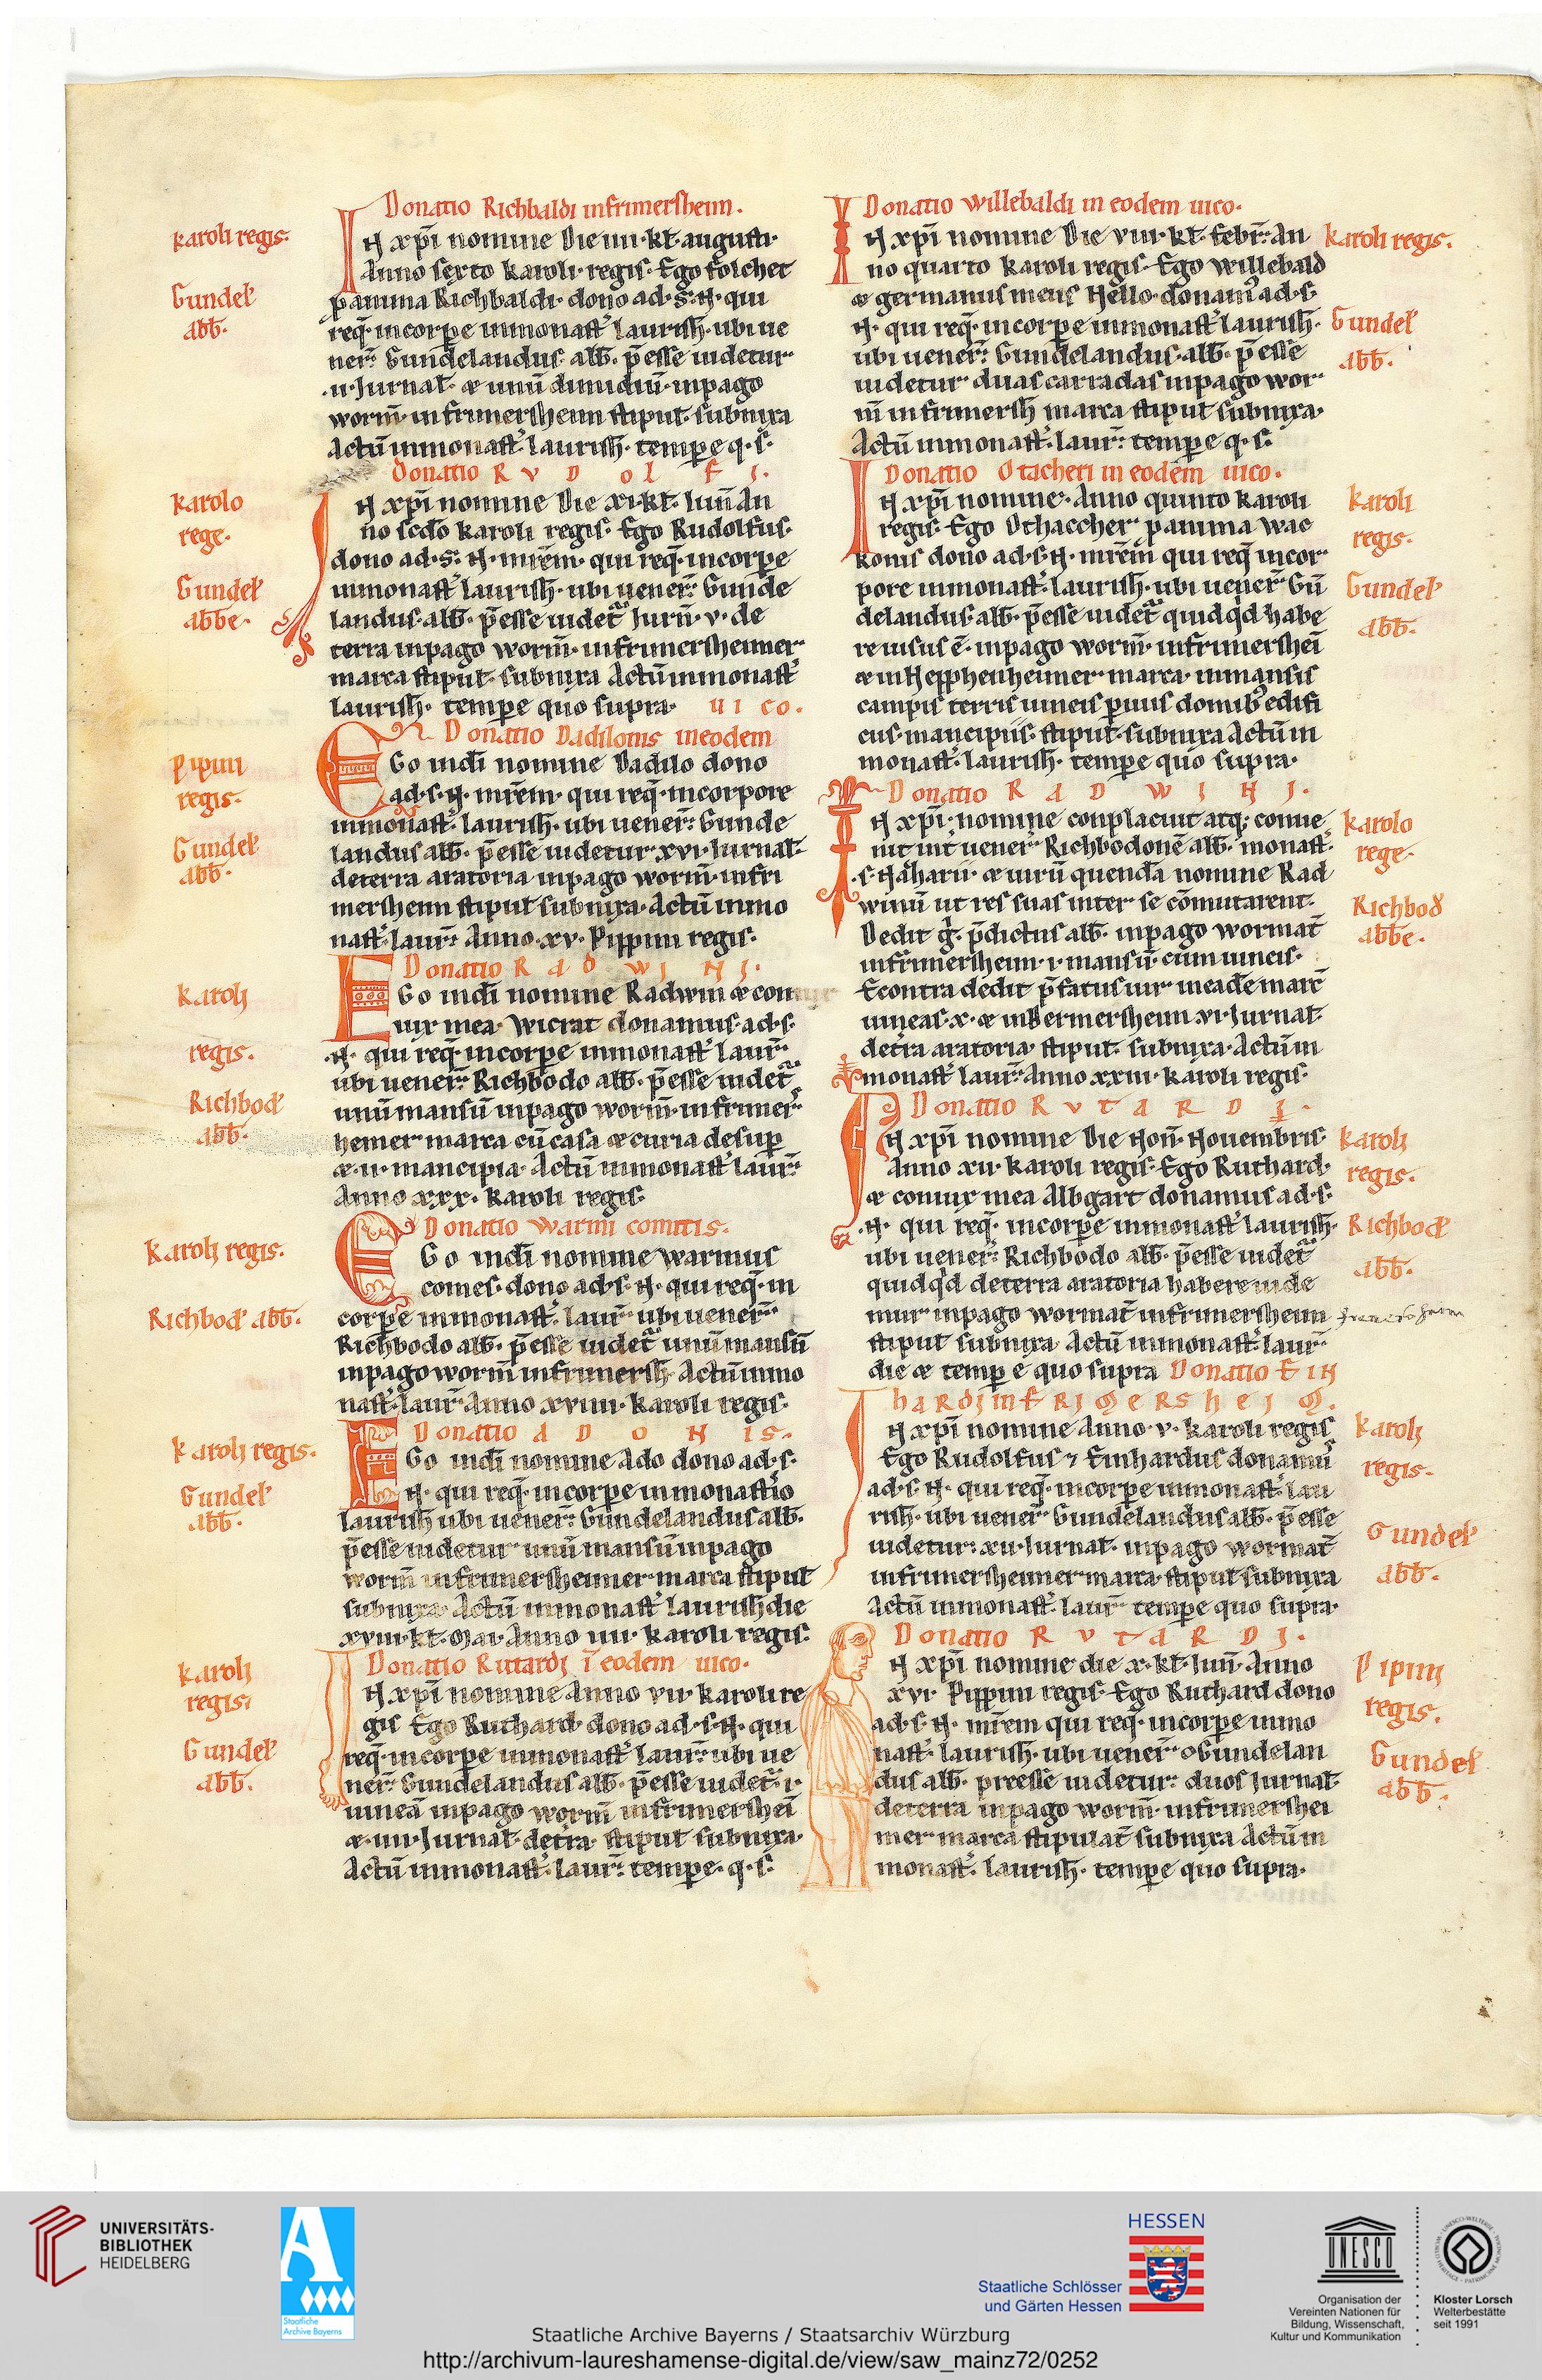 Donatio Richbaldi in frimersheim.
karoli regis.
IN xp̄i nomine Die iiii. kł. augusti.
Anno sexto karoli regis. Ego folchet
Gundeł
abb̄.
p anima Richbaldi. dono ad. s. N. qui
req̄. incorpe inmonast̄ laurish̄. ubi ue
ner̄. Gundelandus. abb̄. p̄esse uidetur
.ii. Jurnał. & unū dimidiū. inpago
worm̄. in frimersheim stipuł. subnixa
Actū inmonast̄. laurish̄. tempe q. s.
Donatio R V D O L F I.
karolo
rege.
IN xp̄i nomine Die xi. kł. Iun̄. An
no sc̄do karoli regis. Ego Rudolfus.
dono ad. s. N. mr̄em. qui req̄. incorpe
Gundeł
abbe.
inmonast̄ laurish̄. ubi uener̄. Gunde
landus. abb̄. p̄esse uidet̄ Jurn̄. v. de
terra inpago worm̄. in frimersheimer
marca stipuł. subnixa Actū inmonast̄
laurish̄. tempe quo supra. uico.
Donatio Dadilonis in eodem
Pipini
regis.
EGo indī nomine Dadilo dono
ad. s. N. mr̄em. qui req̄. incorpore
Gundeł
abb̄.
inmonast̄. laurish̄. ubi uener̄. Gunde
landus abb̄. p̄esse uidetur xvi. Iurnał.
deterra aratoria inpago worm̄. infri
mersheim stipuł subnixa. Actū inmo
nast̄. laur̄. Anno. xv. Pippini regis.
Donatio R A D W I N I.
karoli
EGo indī nomine Radwin & con
iux mea. Wicrat donamus. ad. s.
regis.
.N. qui req̄. incorpe inmonast̄ laur̄.
ubi uener̄. Richbodo abb̄. p̄esse uidet̄
Richbod̄
abb̄.
unū mansū inpago worm̄. in frimers
heimer marca cū casa & curia desup
& .ii. mancipia. Actū inmonast̄ laur̄.
Anno xxx. karoli regis.
Donatio warini comitis.
karoli regis.
EGo indī nomine warinus
comes. dono ad. s. N. qui req̄. in
Richbod̄ abb̄.
corpe inmonast̄. laur̄ ubi uener̄.
Richbodo abb̄. p̄esse uidet̄ unū mansū
inpago worm̄ in frimersh̄. Actū inmo
nast̄. laur̄. Anno xviiii. karoli regis.
Donatio A D O N IS.
karoli regis.
EGo indī nomine Ado dono ad. s.
N. qui req̄. incorpe inmonast̄io
Gundeł
abb̄.
laurish̄ ubi uener̄. Gundelandus abb̄.
p̄esse uidetur unū mansū inpago
worm̄ in frimersheimer marca stipuł
subnixa. Actū inmonast̄ laurish̄ die
xviii. kł. Mai. Anno iiii. karoli regis.
Donatio Rutardi ī eodem uico.
karoli
regis.
IN xp̄i nomine Anno vii. karoli re
gis Ego Ruthard. dono ad. s. N. qui
Gundeł
abb̄.
req̄. incorpe inmonast̄ laur̄. ubi ue
ner̄. Gundelandus abb̄. p̄esse uidet̄. i.
uineā inpago worm̄ in frimersheī
& .iiii. Jurnał. det̄ra. stipuł subnixa.
Actū inmonast̄. laur̄. tempe. q. s.
Donatio willebaldi in eodem uico.
IN xp̄i nomine Die viii. kł. febr̄. An
karoli regis.
no quarto karoli regis. Ego willebald
& germanus meus Hello. donam̄ ad. s.
N. qui req̄. incorpe inmonast̄ laurish̄.
Gundeł
abb̄.
ubi uener̄. Gundelandus. abb̄. p̄esse
uidetur duas carradas inpago wor
m̄ in frimersh̄ marca stipuł subnixa.
Actū inmonast̄. laur̄. tempe q. s.
Donatio Otacheri in eodem uico.
IN xp̄i nomine. Anno quinto karoli
karoli
regis.
regis. Ego Othaccher p anima wac
konis dono ad. s. N. mr̄em qui req̄ incor
pore inmonast̄. laurish̄. ubi uener̄ Gū
Gundeł
abb̄.
delandus. abb̄. p̄esse uidet̄ quidq̄d habe
re uisus ē. inpago worm̄. in frimersheī
& in Hepphenheimer marca. inmansis
campis terris uineis p̄uiis domib; edifi
ciis. mancipiis. stipuł. subnixa Actū in
monast̄. laurish̄. tempe quo supra.
Donatio R A D W I N I.
IN xp̄i. nomine conplacuit atq; conue
karolo
rege.
nit int̄ uener̄ Richbodonē abb̄. monast̄.
.s. Naharii. & uirū quendā nomine Rad
Richbod
abbe.
winū ut res suas inter se cōmutarent.
Dedit g̊. p̄dictus abb̄. inpago wormat̄
in frimersheim. i. mansū. cum uineis.
Econtra dedit p̄fatus uir ineadē marc̄
uineas. x. & in Dermersheim. vi. Jurnał.
det̄ra aratoria stipuł. subnixa. Actū in
monast̄ laur̄. Anno xxiii. karoli regis.
Donatio R V T A R D I.
IN xp̄i nomine Die Non̄. Nouembris.
karoli
regis.
Anno xii. karoli regis. Ego Ruthard.
& coniux mea Albgart donamus ad. s.
.N. qui req̄. incorpe inmonast̄ laurish̄.
Richbod̄
abb̄.
ubi uener̄. Richbodo abb̄. p̄esse uidet̄
quidq̄d deterra aratoria habere uide
mur inpago wormat̄ in frimersheim
stipuł subnixa Actū inmonast̄. laur̄
die & tempe quo supra Donatio EIN
HARDI in FRIMERSHEIM.
IN xp̄i nomine Anno. v. karoli regis
karoli
regis.
Ego Rudolfus ⁊ Einhardus donam̄
ad. s. N. qui req̄. incorpe inmonast̄. lau
rish̄. ubi uener̄ Gundelandus abb̄. p̄esse
Gundeł
abb̄.
uidetur. xii. Jurnał. inpago wormat̄
in frimersheimer marca. stipuł subnixa
Actū inmonast̄. laur̄ tempe quo supra.
Donatio R V T A R D I.
IN xp̄i nomine die x. kł. Iun̄. Anno
Pipini
regis.
xvi. Pippini regis. Ego Ruthard dono
ad. s. N. mr̄em qui req̄. incorpe inmo
nast̄. laurish̄. ubi uener̄ Gundelan
Gundeł
abb̄.
dus abb̄. preesse uidetur. duos Jurnał.
deterra inpago worm̄. in frimershei
mer marca stipulat̄ subnixa Actū in
monast̄. laurish̄. tempe quo supra.
UNIVERSITÄTS-
BIBLIOTHEK
HEIDELBERG
Staatliche
Archive Bayerns
HESSEN
Staatliche Schlösser
und Gärten Hessen
UNESCO
Organisation der
Vereinten Nationen für
Bildung, Wissenschaft,
Kultur und Kommunikation
Kloster Lorsch
Welterbestätte
seit 1991
Staatliche Archive Bayerns / Staatsarchiv Würzburg
http://archivum-laureshamense-digital.de/view/saw_mainz72/0252